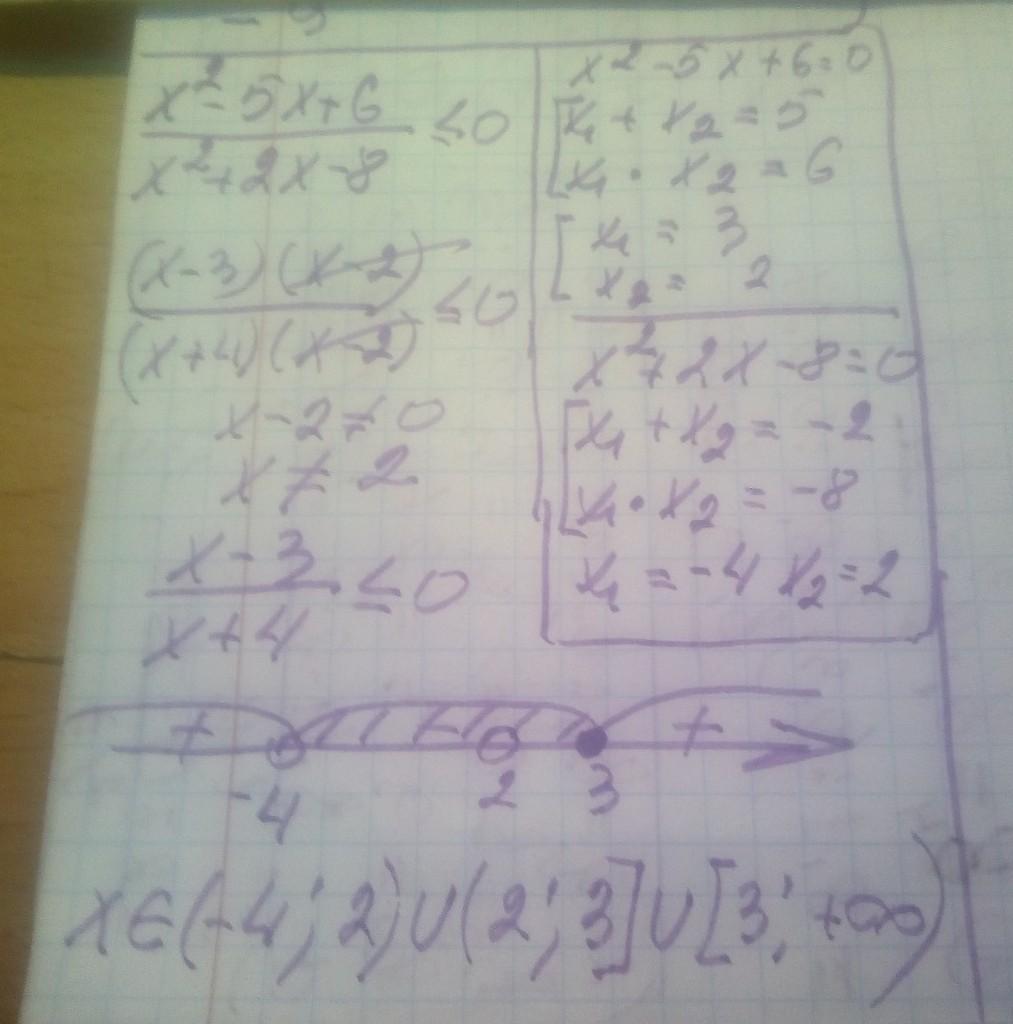 - 9
x² - 5x + 6 / x² + 2x - 8 ≤ 0
(x - 3)(x - 2) / (x + 4)(x - 2) ≤ 0
x - 2 ≠ 0
x ≠ 2
x - 3 / x + 4 ≤ 0
x² - 5x + 6 = 0
[x₁ + x₂ = 5
[x₁ · x₂ = 6
[x₁ = 3
[x₂ = 2
x² + 2x - 8 = 0
[x₁ + x₂ = -2
[x₁ · x₂ = -8
x₁ = -4 x₂ = 2
+ - +
-4 2 3
x ∈ (-4; 2) ∪ (2; 3] ∪ [3; +∞)